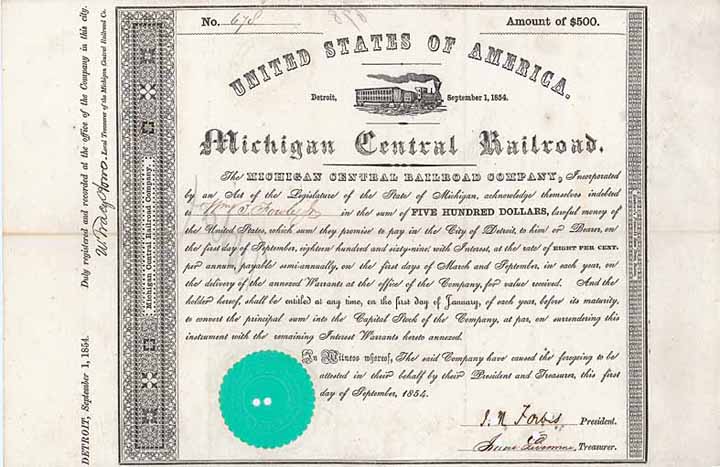 No. 678
Amount of $500.
UNITED STATES OF AMERICA.
Detroit, September 1, 1854.
Michigan Central Railroad.
The MICHIGAN CENTRAL RAILROAD COMPANY, Incorporated
by an Act of the Legislature of the State of Michigan, acknowledge themselves indebted
to in the sum of FIVE HUNDRED DOLLARS, lawful money of
the United States, which sum they promise to pay in the City of Detroit, to him or Bearer, on
the first day of September, eighteen hundred and sixty-nine; with Interest, at the rate of EIGHT PER CENT.
per annum, payable semi-annually, on the first days of March and September, in each year, on
the delivery of the annexed Warrants at the office of the Company, for value received. And the
holder hereof, shall be entitled at any time, on the first day of January, of each year, before its maturity,
to convert the principal sum into the Capital Stock of the Company, at par, on surrendering this
instrument with the remaining Interest Warrants hereto annexed.
In Witness whereof, The said Company have caused the foregoing to be
attested in their behalf by their President and Treasurer, this first
day of September, 1854.
J. M. Forbes President.
Treasurer.
Michigan Central Railroad Company.
DETROIT, September 1, 1854. Duly registered and recorded at the office of the Company in this city.
Local Treasurer of the Michigan Central Railroad Co.